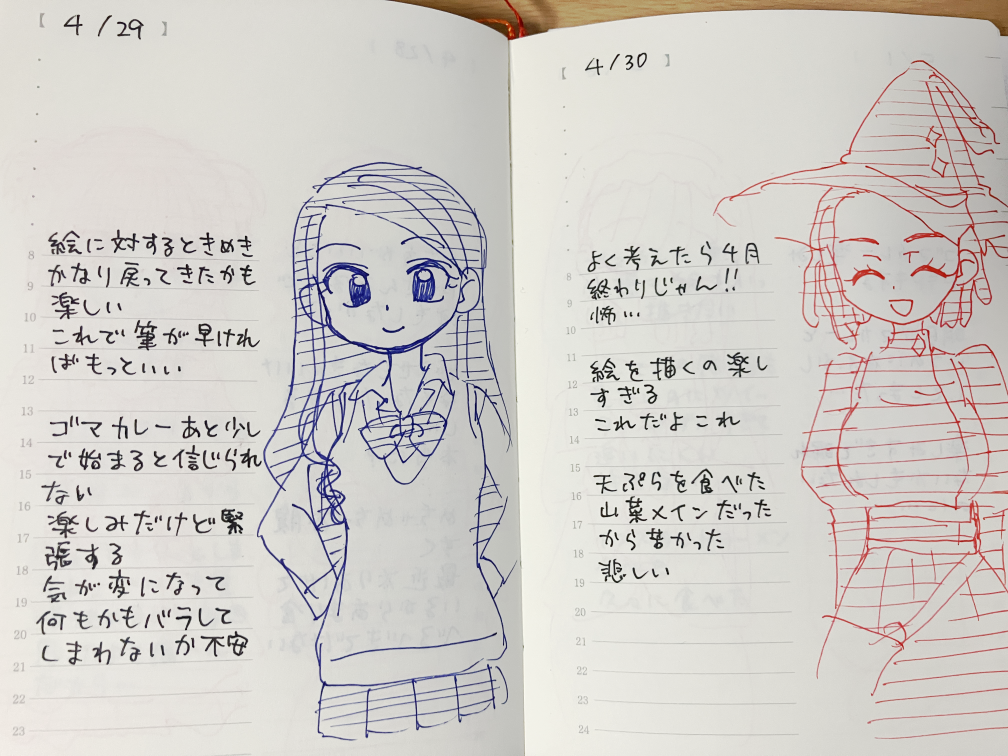 【 4/29 】
8
9
10
11
12
13
14
15
16
17
18
19
20
21
22
23
絵に対するときめき
かなり戻ってきたかも
楽しい
これで筆が早けれ
ばもっといい
ゴマカレーあと少し
で始まると信じられ
ない
楽しみだけど緊
張する
気が変になって
何もかもバラして
しまわないか不安
【 4/30 】
8
9
10
11
12
13
14
15
16
17
18
19
20
21
22
23
24
よく考えたら4月
終わりじゃん!!
怖…
絵を描くの楽し
すぎる
これだよこれ
天ぷらを食べた
山菜メインだった
から苦かった
悲しい